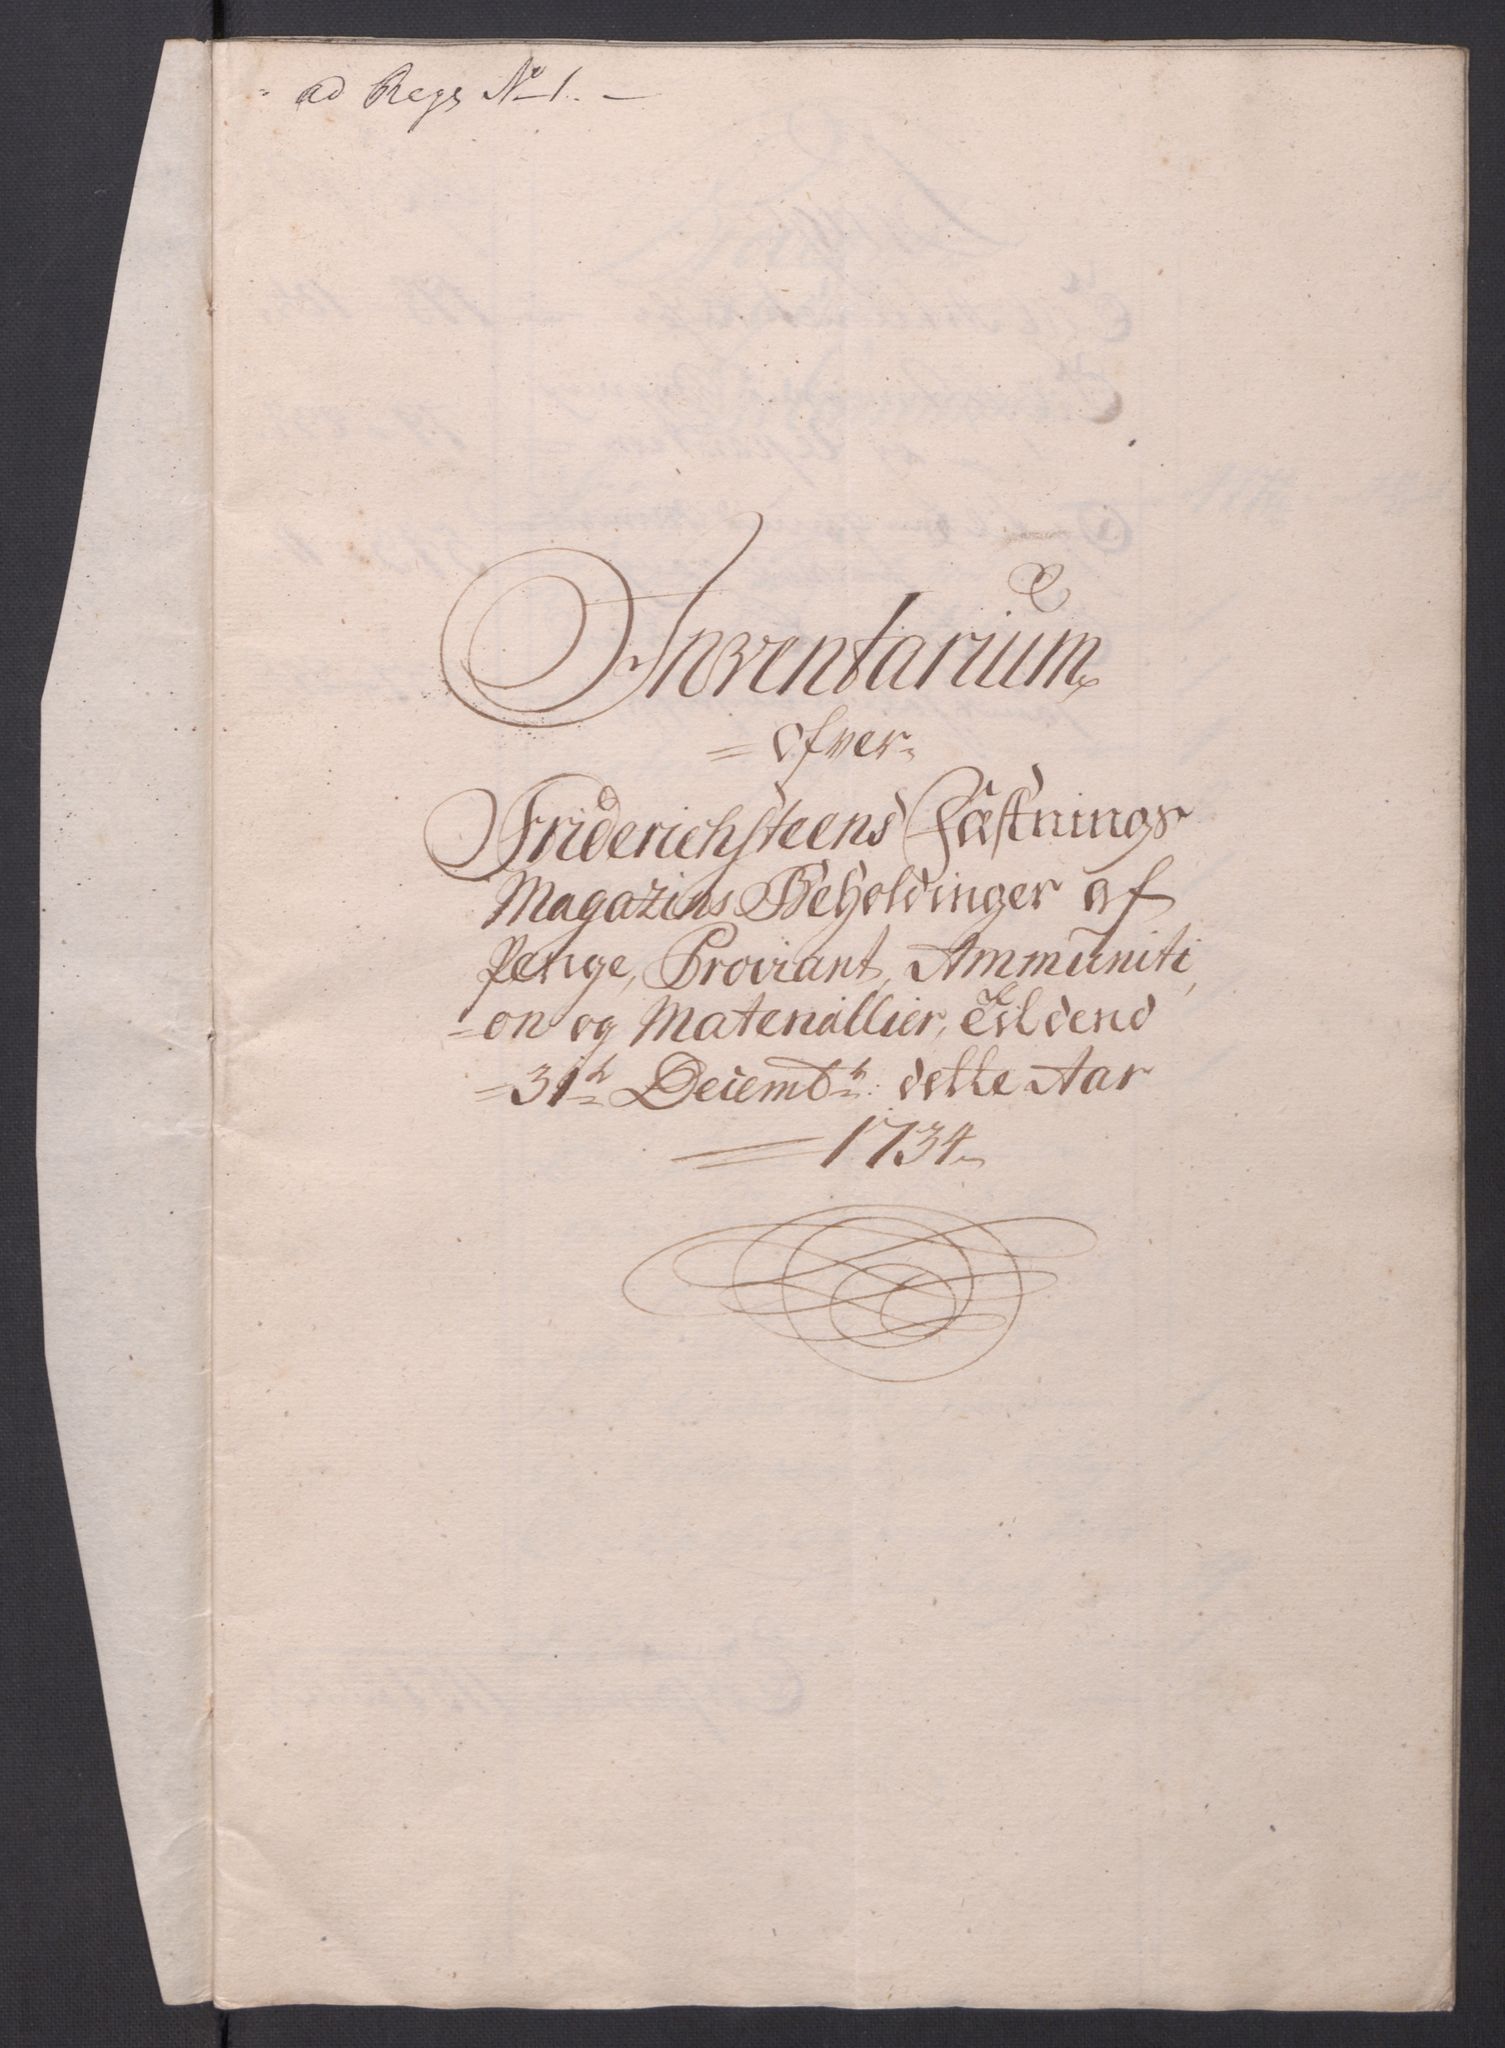 ad Regs No 1.
Inventarium
ofver
Friderichsteens Fæstnings
Magazins Beholdinger af
Penge, Proviant, Ammuniti
on og Materiallier, til dend
31te Decembr: dette Aar
1734